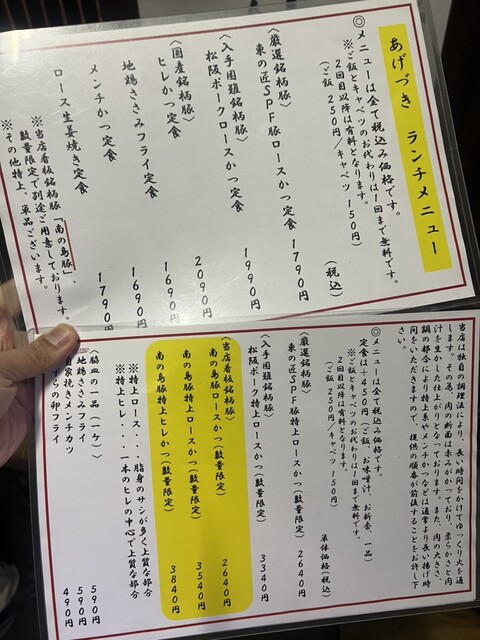 あげづき ランチメニュー
◎メニューは全て税込み価格です。
※ご飯とキャベツのお代わりは1回まで無料です。
2回目以降は有料となります。
(ご飯 250円/キャベツ 150円)
(税込)
〈厳選銘柄豚〉
東の匠SPF豚ロースかつ定食 1790円
〈入手困難銘柄豚〉
松阪ポークロースかつ定食 1990円
〈国産銘柄豚〉
ヒレかつ定食 2090円
地鶏ささみフライ定食 1690円
メンチかつ定食 1690円
ロース生姜焼き定食 1790円
※当店看板銘柄豚「南の島豚」、
数量限定で別途ご用意しております。
※その他特上、単品ございます。
当店は独自の調理法により、長い時間をかけてゆっくり火を通
します。その為、肉の断面は赤みがかっており、柔らかさと肉
汁を生かした仕上がりとなっております。また、肉の大きさ、
鍋の都合により特上系やメンチかつなどは通常より長い揚げ時
間をいただきますので、提供の順番が前後することをお許し下
さい。
◎メニューは全て税込み価格です。
定食は+450円(ご飯、お味噌汁、お新香、一品)
※ご飯とキャベツのお代わりは1回まで無料です。
2回目以降は有料となります。
(ご飯 250円/キャベツ 150円)
単体価格(税込)
〈厳選銘柄豚〉
東の匠SPF豚特上ロースかつ(数量限定) 2640円
〈入手困難銘柄豚〉
松阪ポーク特上ロースかつ(数量限定) 3340円
〈当店看板銘柄豚〉
南の島豚ロースかつ(数量限定) 2640円
南の島豚特上ロースかつ(数量限定) 3540円
南の島豚特上ヒレかつ(数量限定) 3840円
※特上ロース...脂身のサシが多く上質な部分
※特上ヒレ...一本のヒレの中心で上質な部分
〈脇皿の一品(一ケ)〉
地鶏ささみフライ 590円
自家挽きメンチカツ 590円
うずらの卵フライ 490円